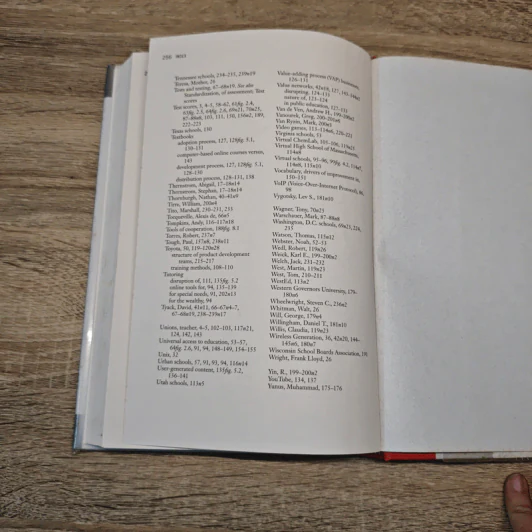 256 INDEX
Tennessee schools, 234–235, 239n19
Teresa, Mother, 26
Tests and testing, 67–68n19. See also
Standardization, of assessment; Test
scores
Test scores, 3, 4–5,
Texas schools, 130
Textbooks
adoption process, 127, 128fig. 5.1,
130–131
computer-based online courses versus,
143
development process, 127, 128fig. 5.1,
128–130
distribution process, 128–131, 138
Thernstrom, Abigail, 17–18n14
Thernstrom, Stephan, 17–18n14
Thornburgh, Nathan, 40–41n9
Thyre, William, 200n4
Tito, Marshall, 230–231, 233
Tocqueville, Alexis de, 66n5
Tompkins, Andy, 116–117n16
Tools of cooperation, 188fig. 8.1
Torres, Robert, 237n7
Tough, Paul, 157n8, 238n11
Toyota, 30, 119–120n28
structure of product development
teams, 215–217
training methods, 108–110
Tutoring
disruption of, 111, 133fig. 5.2
online tools for, 94, 135–139
for special needs, 91, 202n13
for the wealthy, 94
Tyack, David, 41n11, 66–67n4–7,
67–68n19, 238–239n17
Unions, teacher, 4–5, 102–103, 117n21,
124, 142, 143
Universal access to education, 53–57,
64fig. 2.6, 91, 94, 148–149, 154–155
Unix, 52
Urban schools, 37, 91, 93, 94, 116n14
User-generated content, 133fig. 5.2,
136–141
Utah schools, 113n5
Value-adding process (VAP) businesses,
126–131
Value networks, 42n19, 127,
disrupting, 124–131
nature of, 123–124
in public education, 127–131
Van de Ven, Andrew H., 199–200n2
Vanourek, Gregg, 200–201n6
Van Ryzin, Mark, 200n3
Video games, 113–114n6, 220–221
Virginia schools, 51
Virtual ChemLab, 105–106, 119n25
Virtual High School of Massachusetts,
114n8
Virtual schools, 95–96, 99fig. 4.2, 114n7,
114n8, 115n10
Vocabulary, drivers of improvement in,
150–151
VoIP (Voice-Over-Internet Protocol),
98
Vygotsky, Lev S., 181n10
Wagner, Tony, 70n23
Warschauer, Mark, 87–88n8
Washington, D.C. schools, 69n23, 224,
235
Watson, Thomas, 115n12
Webster, Noah, 52–53
Wedl, Robert, 119n26
Weick, Karl E., 199–200n2
Welch, Jack, 231–232
West, Martin, 119n25
West, Tom, 210–211
WestEd, 113n2
Western Governors University, 126,
180n6
Wheelwright, Steven C., 236n2
Whitman, Walt, 26
Will, George, 179n4
Willingham, Daniel T., 181n10
Willis, Claudia, 119n23
Wireless Generation, 36, 42n20, 144–
145n6, 180n7
Wisconsin School Boards Association,
Wright, Frank Lloyd, 26
Yin, R., 199–200n2
YouTube, 134, 137
Yunus, Muhammad, 175–176